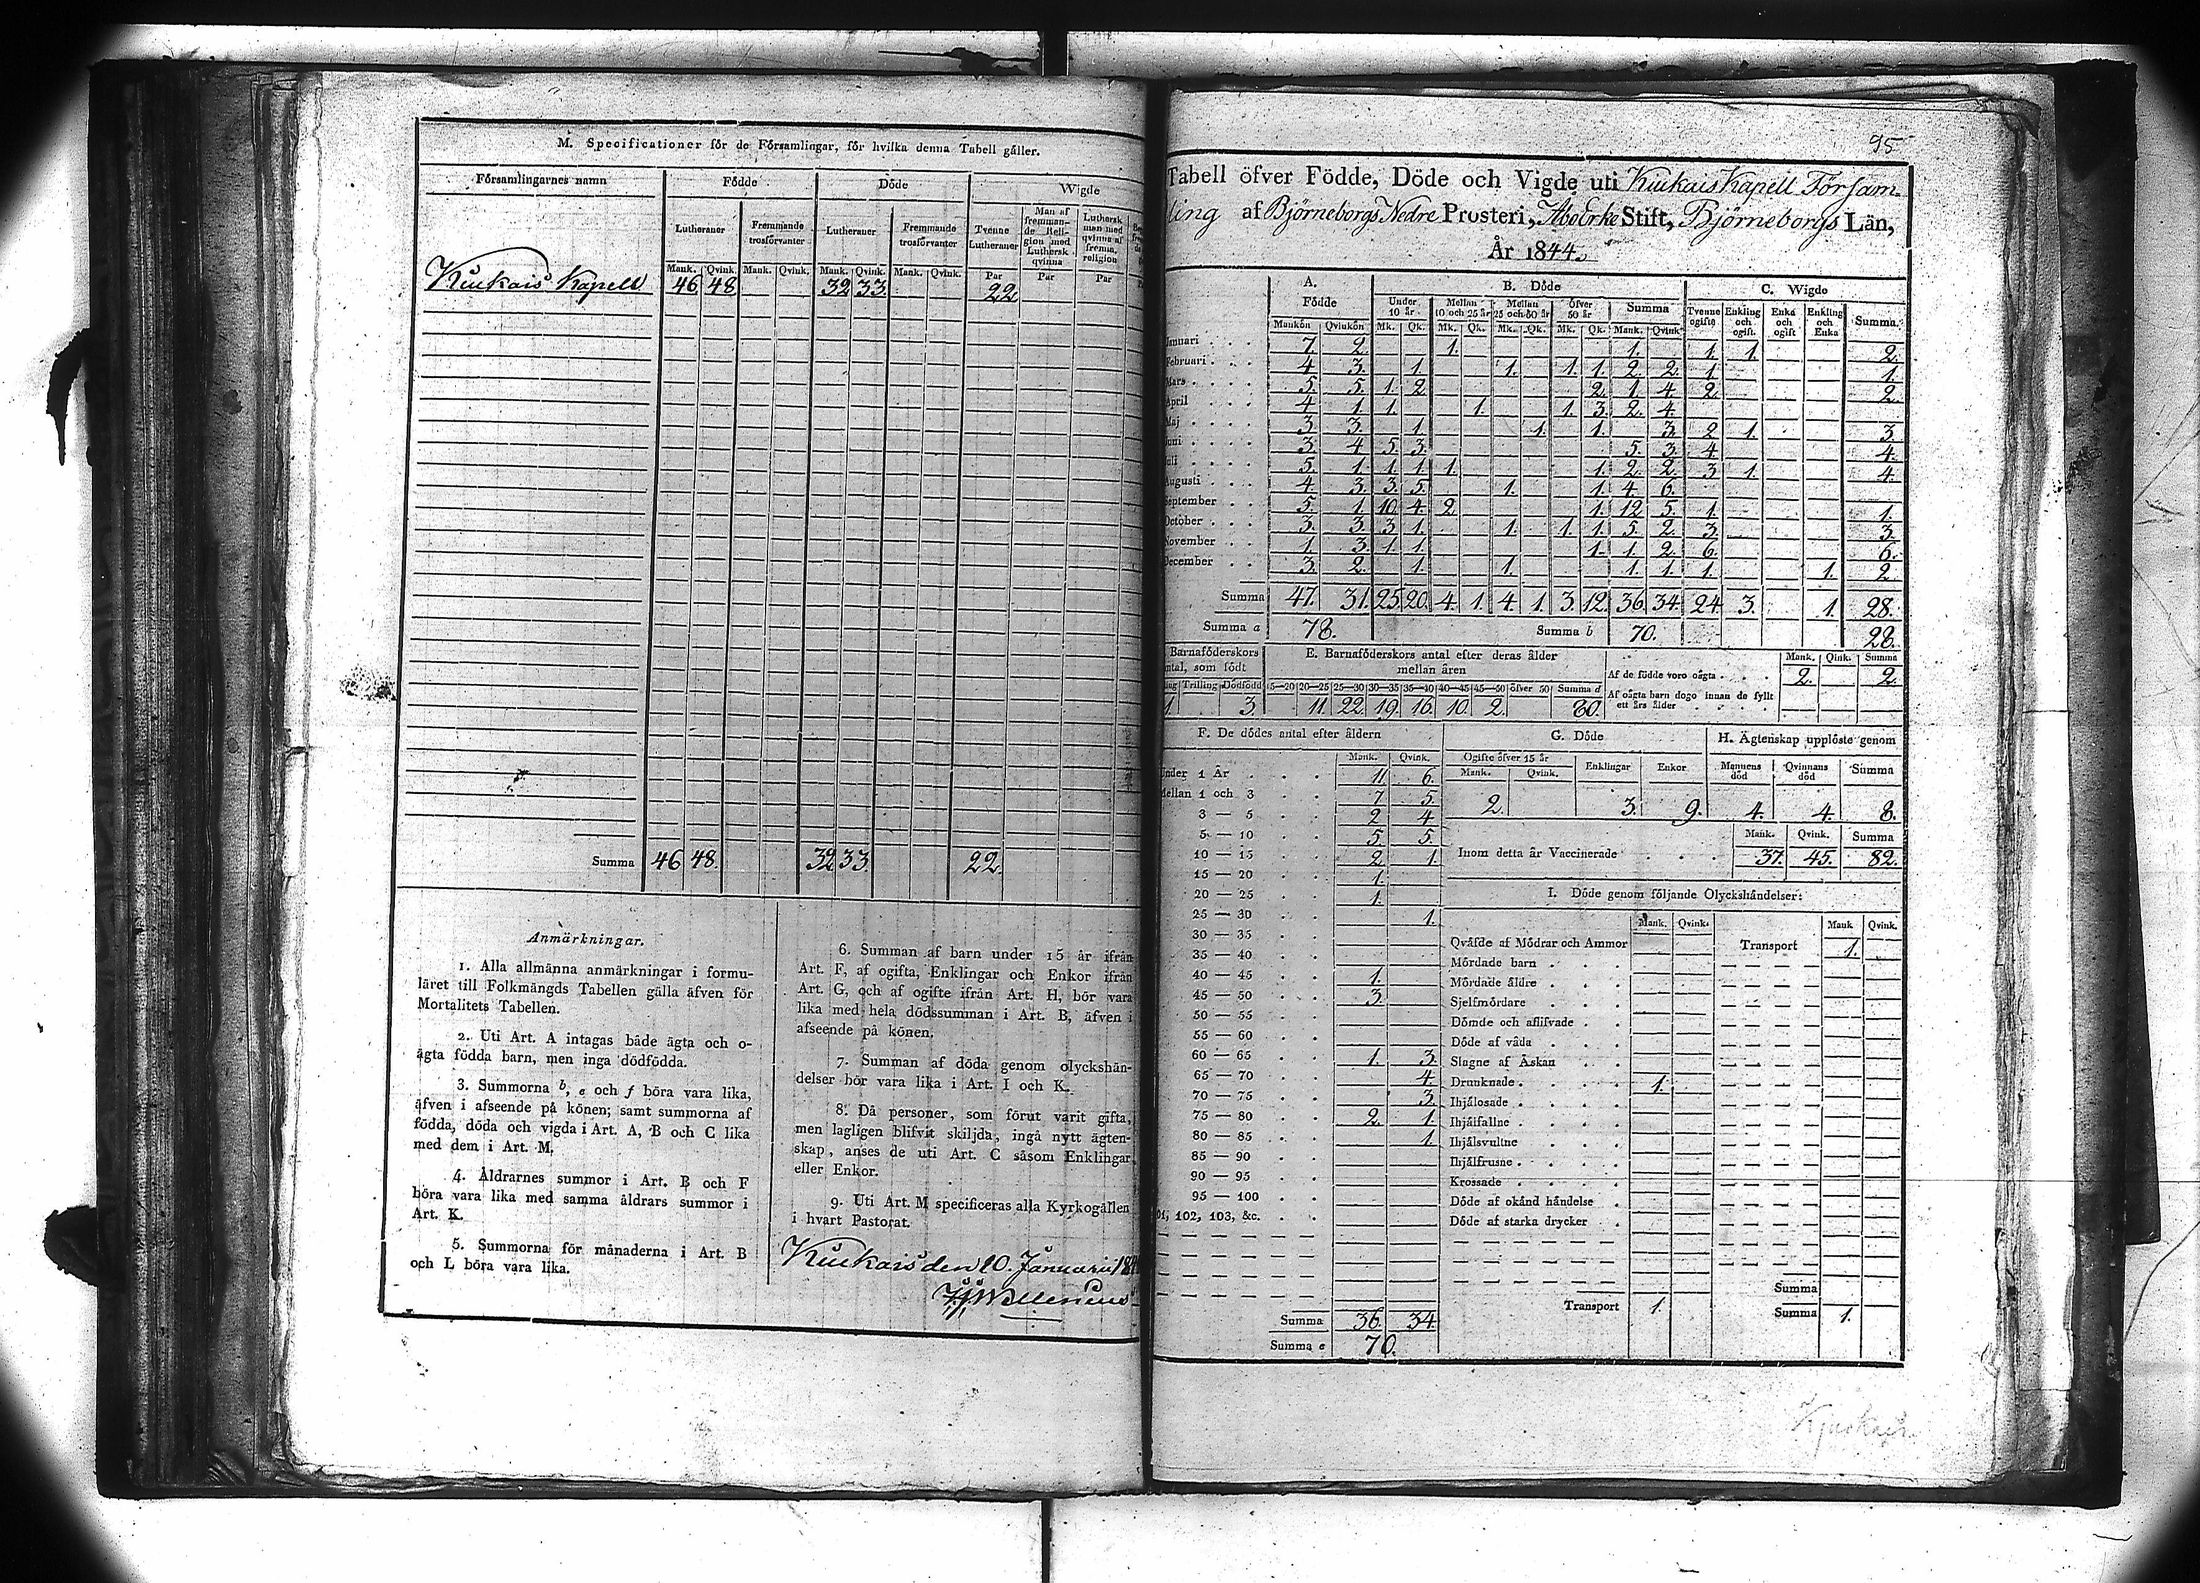 M. Specificationer för de Församlingar, för hvilka denna Tabell gäller.
Församlingarnes namn | Födde | Döde | Wigde
Lutheraner | Fremmande trosförvanter | Lutheraner | Fremmande trosförvanter | Tvenne Lutheraner | Man af fremmande Religion med Luthersk qvinna | Luthersk man med qvinna af fremm. religion
Mank. | Qvink. | Mank. | Qvink. | Mank. | Qvink. | Mank. | Qvink. | Par | Par | Par
Kiukais Kapell 46 48 32 33 22
Summa 46 48. 32 33. 22.
Anmärkningar.
1. Alla allmänna anmärkningar i formu-
läret till Folkmängds Tabellen gälla äfven för
Mortalitets Tabellen.
2. Uti Art. A intagas både ägta och o-
ägta födda barn, men inga dödfödda.
3. Summorna b, e och f böra vara lika,
äfven i afseende på könen; samt summorna af
födda, döda och vigda i Art. A, B och C lika
med dem i Art. M.
4. Åldrarnes summor i Art. B och F
böra vara lika med samma åldrars summor i
Art. K.
5. Summorna för månaderna i Art. B
och L böra vara lika.
6. Summan af barn under 15 år ifrån
Art. F, af ogifta, Enklingar och Enkor ifrån
Art. G, och af ogifte ifrån Art. H, bör vara
lika med hela dödssumman i Art. B, äfven i
afseende på könen.
7. Summan af döda genom olyckshän-
delser bör vara lika i Art. I och K.
8. Då personer, som förut varit gifta,
men lagligen blifvit skiljda, ingå nytt ägten-
skap, anses de uti Art. C såsom Enklingar
eller Enkor.
9. Uti Art. M specificeras alla Kyrkogällen
i hvart Pastorat.
Kiukais den 20. Januarii
95
Tabell öfver Födde, Döde och Vigde uti Kiukais Kapell Försam-
ling af Björneborgs Nedre Prosteri, Åbo Erke Stift, Björneborgs Län,
År 1844.
A. Födde | B. Döde | C. Wigde
Under 10 år | Mellan 10 och 25 år | Mellan 25 och 50 år | öfver 50 år | Summa | Tvenne ogifte | Enkling och ogift. | Enka och ogift | Enkling och Enka | Summa.
Mankön | Qvinkön | Mk. | Qk. | Mk. | Qk. | Mk. | Qk. | Mk. | Qk. | Mank. | Qvink
Januari 7. 2. 1. 1. 1. 1. 2.
Februari 4 3. 1. 1. 1. 1. 2. 2. 1. 1.
Mars 5. 5. 1. 2. 2. 1. 4. 2. 2.
April 4. 1. 1. 1. 1. 3. 2. 4.
Maj 3. 3. 1. 1. 1. 3. 2 1. 3.
Juni 3. 4 5 3. 5. 3. 4. 4.
Juli 5. 1. 1. 1. 1. 1. 2. 2. 3 1. 4.
Augusti 4. 3. 3. 5. 1. 1. 4. 6.
September 5. 1. 10. 4. 2. 1. 12. 5. 1. 1.
October 3. 3. 3. 1. 1. 1. 1. 5. 2. 3. 3.
November 1. 3. 1. 1. 1. 1. 2. 6. 6.
December 3. 2. 1. 1. 1. 1. 1. 1. 2.
Summa 47. 31. 25. 20. 4. 1. 4. 1. 3. 12. 36. 34. 24. 3. 1. 28.
Summa a 78. Summa b 70. 28.
Barnaföderskors antal, som födt
Trilling | Dödfödd
1. 3.
E. Barnaföderskors antal efter deras ålder mellan åren
15—20 | 20—25 | 25—30 | 30—35 | 35—40 | 40—45 | 45—50 | öfver 50 | Summa d
11. 22. 19. 16. 10. 2. 80.
Mank. | Qink. | Summa
Af de födde voro oägta 2. 2.
Af oägta barn dogo innan de fyllt
ett års ålder
F. De dödes antal efter åldern
Mank. | Qvink.
Under 1 År 11. 6.
Mellan 1 och 3 7. 5.
3 — 5 2. 4.
5 — 10 5. 5.
10 — 15 2. 1.
15 — 20 1.
20 — 25 1.
25 — 30 1.
30 — 35
35 — 40
40 — 45 1.
45 — 50 3.
50 — 55
55 — 60
60 — 65 1. 3.
65 — 70 4.
70 — 75 3.
75 — 80 2. 1.
80 — 85 1.
85 — 90
90 — 95
95 — 100
101, 102, 103, &c.
Summa 36. 34.
Summa e 70.
G. Döde
Ogifte öfver 15 år | Enklingar | Enkor
Mank. | Qvink.
2. 3. 9.
H. Ägtenskap upplöste genom
Mannens död | Qvinnans död | Summa
4. 4. 8.
Mank. | Qvink. | Summa
Inom detta år Vaccinerade 37. 45. 82.
I. Döde genom följande Olyckshändelser:
Mank. | Qvink. | Mank | Qvink.
Qväfde af Mödrar och Ammor
Transport 1.
Mördade barn
Mördade äldre
Sjelfmördare
Dömde och aflifvade
Döde af våda
Slagne af Åskan
Drunknade 1.
Ihjälosade
Ihjälfallne
Ihjälsvultne
Ihjälfrusne
Krossade
Döde af okänd händelse
Döde af starka drycker
Summa
Transport 1. Summa 1.